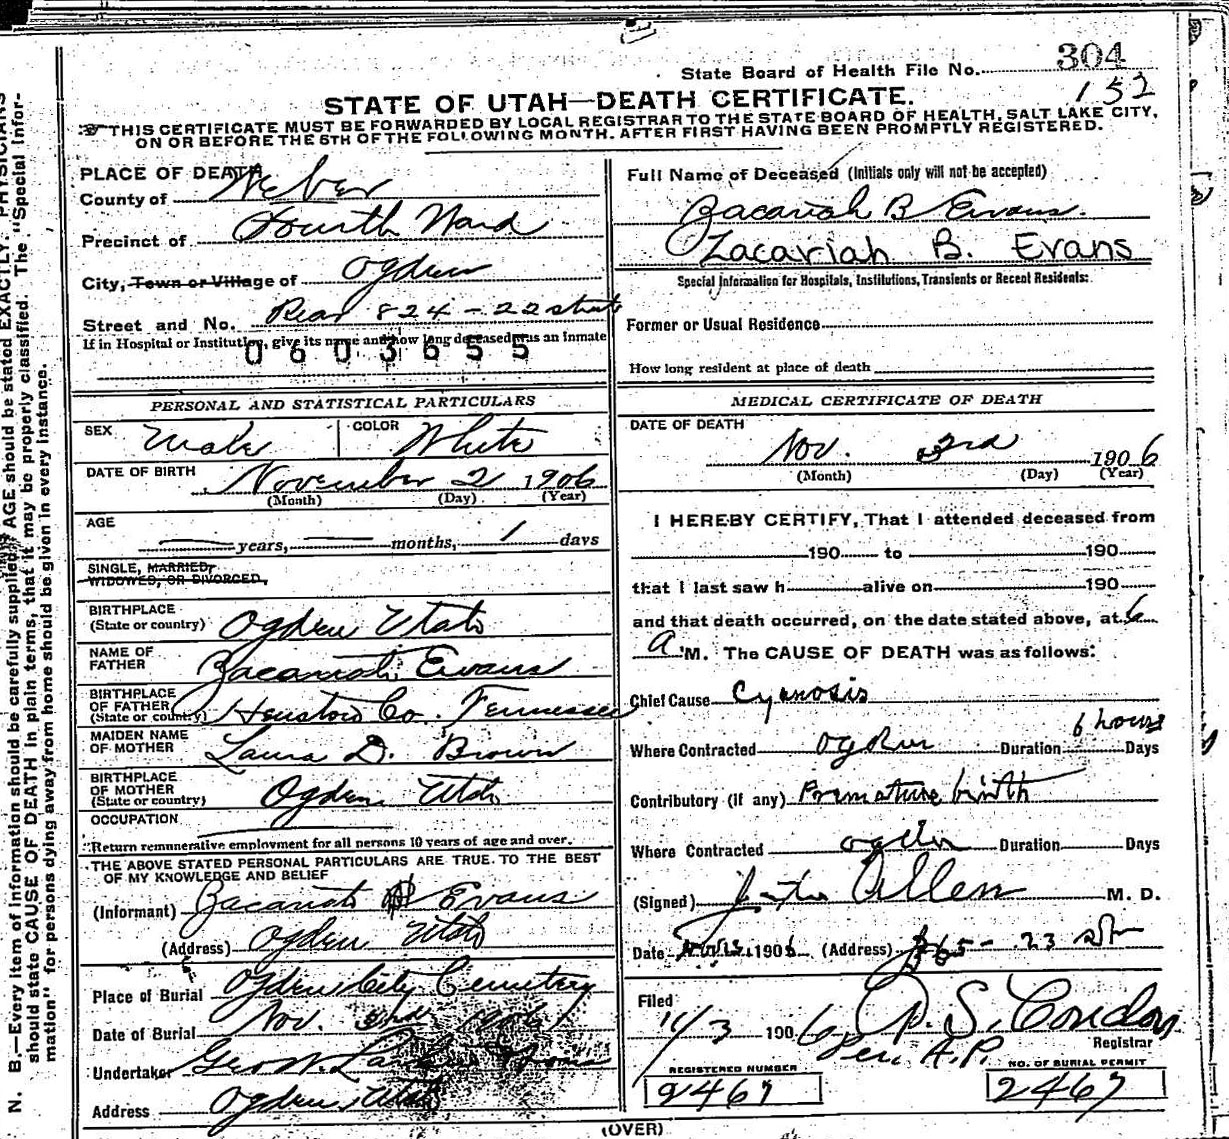 304
State Board of Health File No. 152
STATE OF UTAH—DEATH CERTIFICATE.
THIS CERTIFICATE MUST BE FORWARDED BY LOCAL REGISTRAR TO THE STATE BOARD OF HEALTH, SALT LAKE CITY,
ON OR BEFORE THE 5TH OF THE FOLLOWING MONTH. AFTER FIRST HAVING BEEN PROMPTLY REGISTERED.
N. B.—Every item of information should be carefully supplied. AGE should be stated EXACTLY. PHYSICIANS
should state CAUSE OF DEATH in plain terms, that it may be properly classified. The "Special Infor-
mation" for persons dying away from home should be given in every instance.
PLACE OF DEATH
County of Weber
Precinct of Fourth Ward
City, Town or Village of Ogden
Street and No. Rear 824 - 22 street
If in Hospital or Institution, give its name and how long deceased was an Inmate
0603655
PERSONAL AND STATISTICAL PARTICULARS
SEX Male COLOR White
DATE OF BIRTH November 2 1906
(Month) (Day) (Year)
AGE
years, months, 1 days
SINGLE, MARRIED,
WIDOWED, OR DIVORCED,
BIRTHPLACE
(State or country) Ogden Utah
NAME OF
FATHER Zacariah Evans
BIRTHPLACE
OF FATHER
(State or country) Houston Co. Tennessee
MAIDEN NAME
OF MOTHER Laura D. Brown
BIRTHPLACE
OF MOTHER
(State or country) Ogden Utah
OCCUPATION
Return remunerative employment for all persons 10 years of age and over.
THE ABOVE STATED PERSONAL PARTICULARS ARE TRUE TO THE BEST
OF MY KNOWLEDGE AND BELIEF
(Informant) Zacariah Evans
(Address) Ogden Utah
Place of Burial Ogden City Cemetery
Date of Burial Nov. 3rd 1906
Undertaker Geo W. Larkin
Address Ogden Utah
Full Name of Deceased (Initials only will not be accepted)
Zacariah B Evans.
Zacariah B. Evans
Special Information for Hospitals, Institutions, Transients or Recent Residents:
Former or Usual Residence
How long resident at place of death
MEDICAL CERTIFICATE OF DEATH
DATE OF DEATH
Nov. 3rd 1906
(Month) (Day) (Year)
I HEREBY CERTIFY, That I attended deceased from
190 to 190
that I last saw h alive on 190
and that death occurred, on the date stated above, at 6
a M. The CAUSE OF DEATH was as follows:
Chief Cause Cyanosis
Where Contracted Ogden Duration 6 hours Days
Contributory (if any) Premature birth
Where Contracted Ogden Duration Days
(Signed) Allen M. D.
Date 1906 (Address) 23
Filed
11/3 1906 Condon
Registrar
Per A.P.
REGISTERED NUMBER
2467
NO. OF BURIAL PERMIT
2467
(OVER)